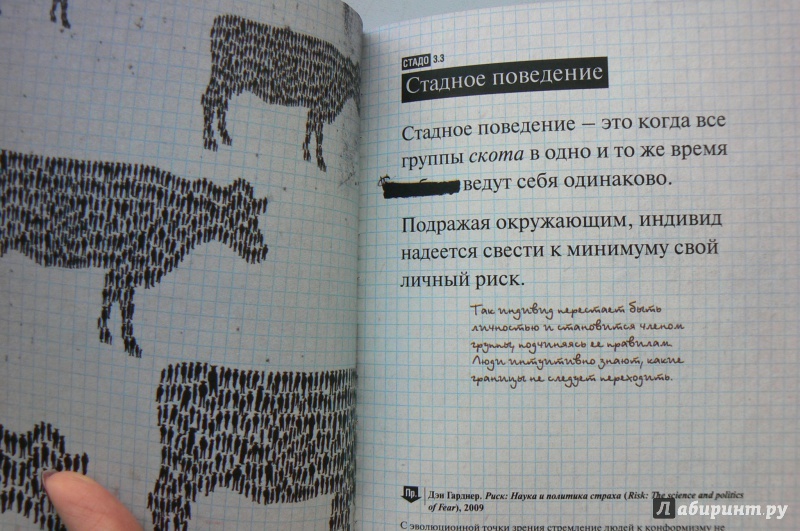 СТАДО 3.3
Стадное поведение
Стадное поведение – это когда все
группы скота в одно и то же время
ведут себя одинаково.
Подражая окружающим, индивид
надеется свести к минимуму свой
личный риск.
Так индивид перестает быть
личностью и становится членом
группы, подчиняясь ее правилам.
Люди интуитивно знают, какие
границы не следует переходить.
Пр. Дэн Гарднер. Риск: Наука и политика страха (Risk: The science and politics
of Fear), 2009
С эволюционной точки зрения стремление людей к конформизму не
Лабиринт.ру